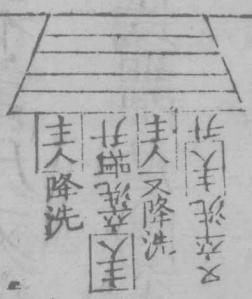 又卒洗主人升
主人又降洗
主人卒洗揖升
主人降洗